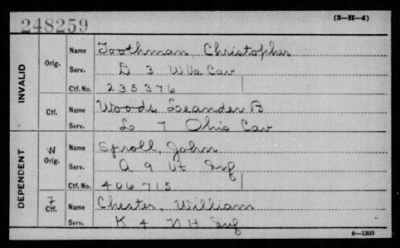 248259
(3-H-4)
INVALID
Orig.
Name Toothman Christopher
Serv. D 3 W Va Cav
Ctf. No. 235376
Ctf.
Name Woods Leander B
Serv. L 7 Ohio Cav
DEPENDENT
W
Orig.
Name Sproll, John
Serv. A 9 Vt Inf
Ctf. No. 406715
Ctf.
Name Chester, William
Serv. K 4 N H Inf
6-1303